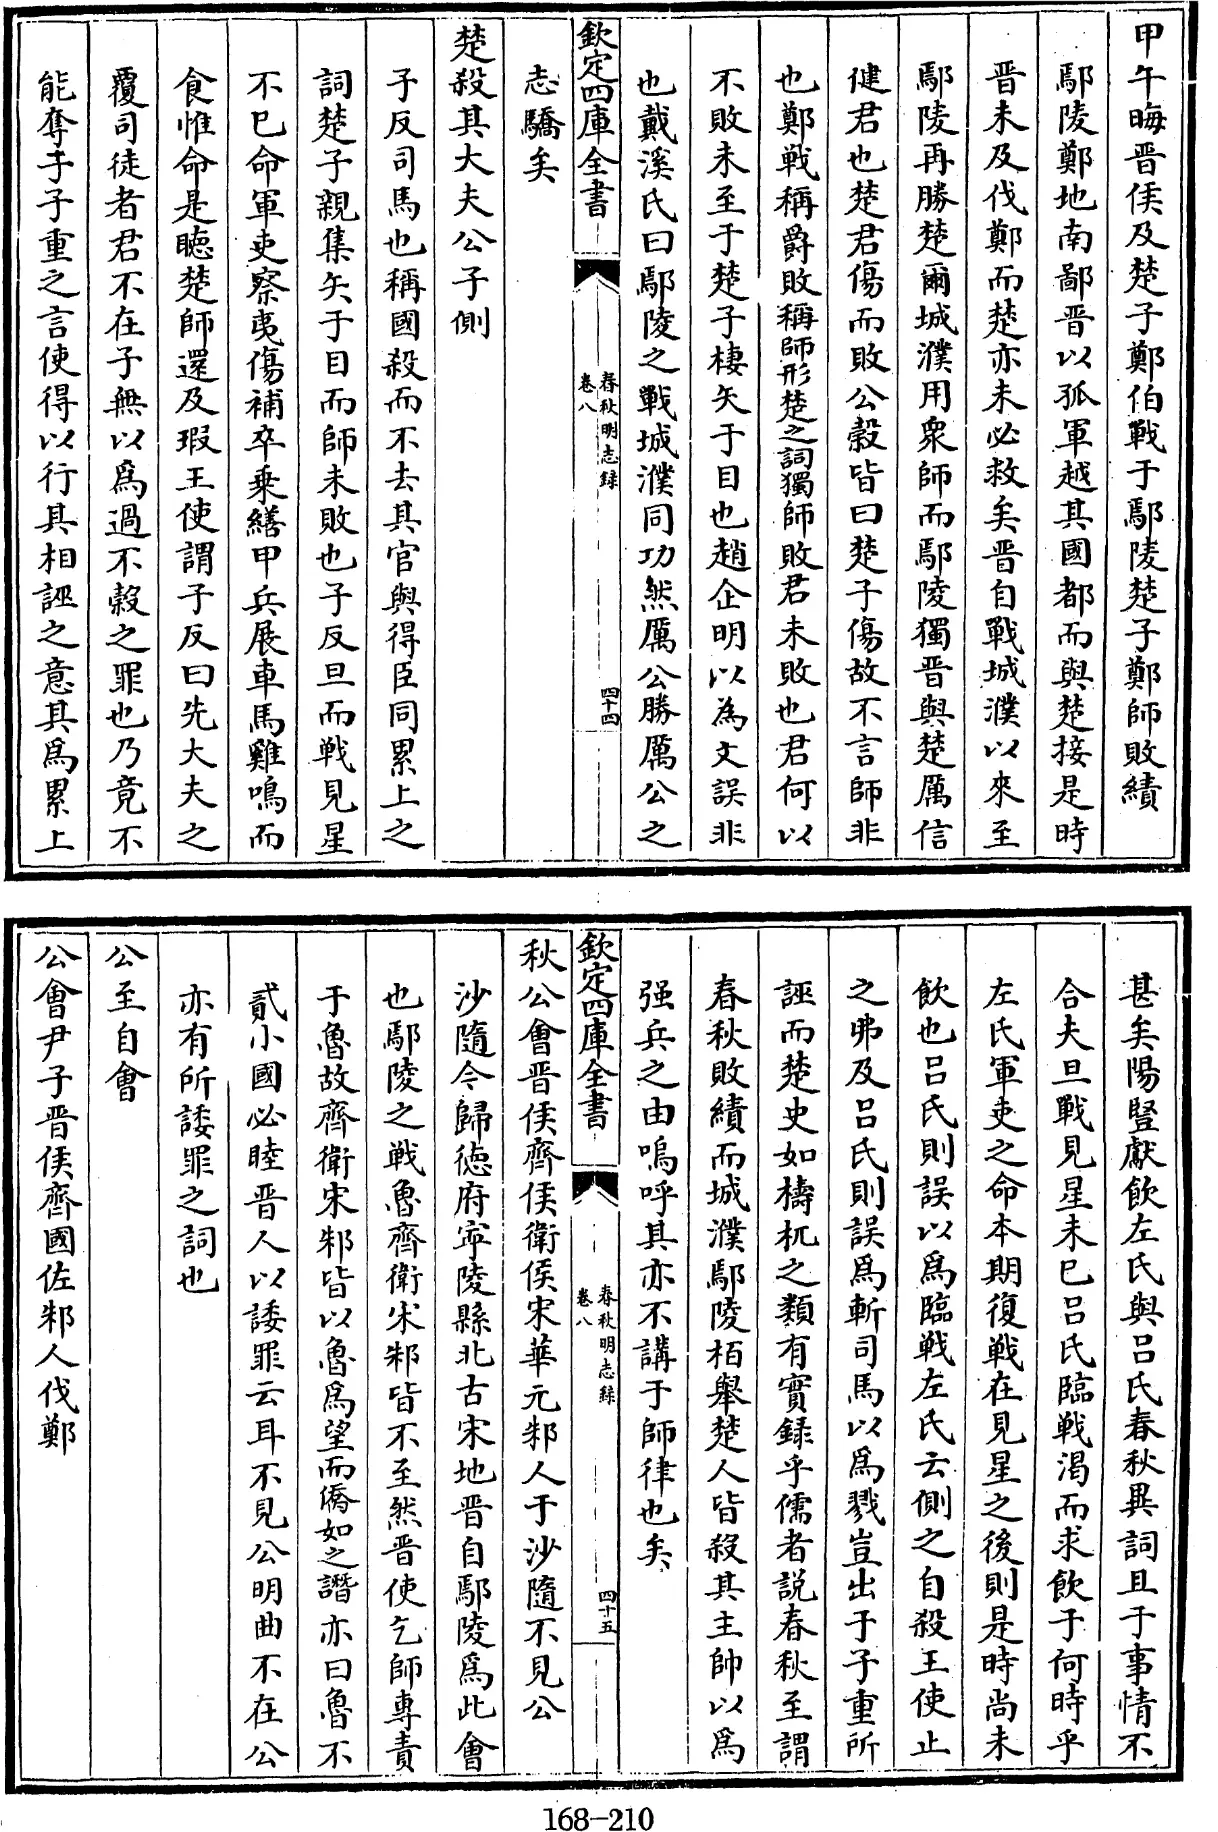 甲午晦晋侯及楚子鄭伯戰于鄢陵楚子鄭師敗績
鄢陵鄭地南鄙晋以孤軍越其國都而與楚接是時
晋未及伐鄭而楚亦未必救矣晋自戰城濮以來至
鄢陵再勝楚爾城濮用衆師而鄢陵獨晋與楚厲信
健君也楚君傷而敗公穀皆曰楚子傷故不言師非
也鄭戰稱爵敗稱師形楚之詞獨師敗君未敗也君何以
不敗未至于楚子棲矢于目也趙企明以為文誤非
也戴溪氏曰鄢陵之戰城濮同功然厲公勝厲公之
欽定四庫全書
春秋明志録
卷八
四十四
志驕矣
楚殺其大夫公子側
子反司馬也稱國殺而不去其官與得臣同累上之
詞楚子親集矢于目而師未敗也子反旦而戰見星
不已命軍吏察夷傷補卒乗繕甲兵展車馬雞鳴而
食惟命是聴楚師還及瑕王使謂子反曰先大夫之
覆司徒者君不在子無以爲過不穀之罪也乃竟不
能奪于子重之言使得以行其相誣之意其爲累上
甚矣陽豎獻飲左氏與吕氏春秋異詞且于事情不
合夫旦戰見星未已吕氏臨戰渇而求飲于何時乎
左氏軍吏之命本期復戰在見星之後則是時尚未
飲也吕氏則誤以爲臨戰左氏云側之自殺王使止
之弗及吕氏則誤爲斬司馬以爲戮豈出于子重所
誣而楚史如檮杌之類有實録乎儒者説春秋至謂
春秋敗績而城濮鄢陵栢舉楚人皆殺其主帥以爲
强兵之由嗚呼其亦不講于師律也矣
欽定四庫全書
春秋明志録
卷八
四十五
秋公會晋侯齊侯衛侯宋華元邾人于沙隨不見公
沙隨今歸徳府寧陵縣北古宋地晋自鄢陵爲此會
也鄢陵之戰魯齊衛宋邾皆不至然晋使乞師專責
于魯故齊衛宋邾皆以魯爲望而僑如之譖亦曰魯不
貳小國必睦晋人以諉罪云耳不見公明曲不在公
亦有所諉罪之詞也
公至自會
公會尹子晋侯齊國佐邾人伐鄭
168-210